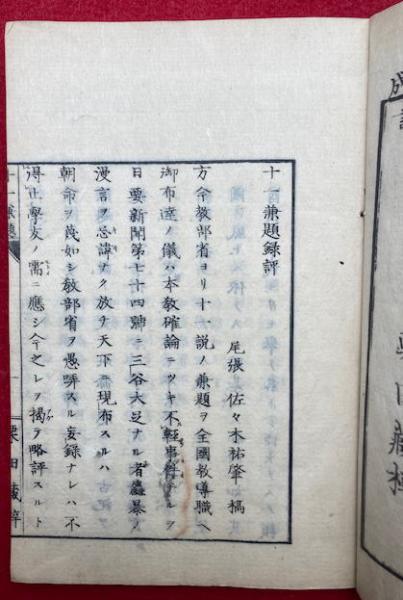 十一兼題録評
尾張 佐々木祐肇 槁
方今教部省ヨリ十一説ノ兼題ヲ全國教導職ヘ
御布達ノ儀ハ本教確論ニツキ不輕事件ナルヲ
日要新聞第七十四號ニ三谷大足ナル者麁暴ノ
漫言ヲ忌諱ナク放チ天下ニ現布スルハ
朝命ヲ蔑如シ教部省ヲ愚哢スル妄録ナレハ不
得止學友ノ需ニ應シ今之レヲ揭ヲ略評スルト
十一兼題
一
栗田藏梓